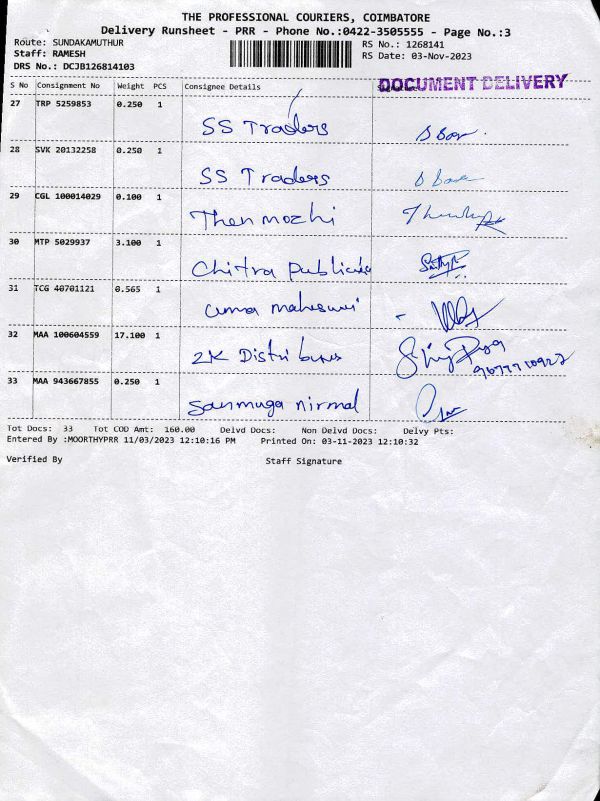 THE PROFESSIONAL COURIERS, COIMBATORE
Delivery Runsheet - PRR - Phone No.:0422-3505555 - Page No.:3
Route: SUNDAKAMUTHUR RS No.: 1268141
Staff: RAMESH RS Date: 03-Nov-2023
DRS No.: DCJB126814103
DOCUMENT DELIVERY
S No Consignment No Weight PCS Consignee Details
27 TRP 5259853 0.250 1
SS Traders
28 SVK 20132258 0.250 1
SS Traders
29 CGL 100014029 0.100 1
Then mozhi
30 MTP 5029937 3.100 1
Chitra
31 TCG 40701121 0.565 1
uma
32 MAA 100604559 17.100 1
2K
33 MAA 943667855 0.250 1
sanmuga nirmal
Tot Docs: 33 Tot COD Amt: 160.00 Delvd Docs: Non Delvd Docs: Delvy Pts:
Entered By :MOORTHYPRR 11/03/2023 12:10:16 PM Printed On: 03-11-2023 12:10:32
Verified By Staff Signature